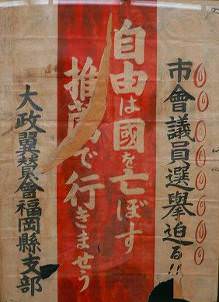 市會議員選擧迫る!!
自由は國を亡ぼす
推薦で行きませう
大政翼賛會福岡縣支部